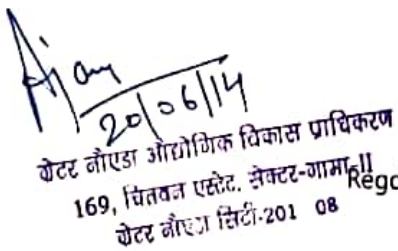 Ajay
20/06/14
ग्रेटर नौएडा औद्योगिक विकास प्राधिकरण
169, चितवन एस्टेट, सेक्टर-गामा-II
ग्रेटर नौएडा सिटी-201 08